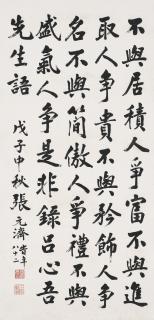 不與居積人爭富不與進
取人爭貴不與矜飾人爭
名不與簡傲人爭禮不與
盛氣人爭是非錄呂心吾
先生語
戊子中秋張元濟時年
八十二